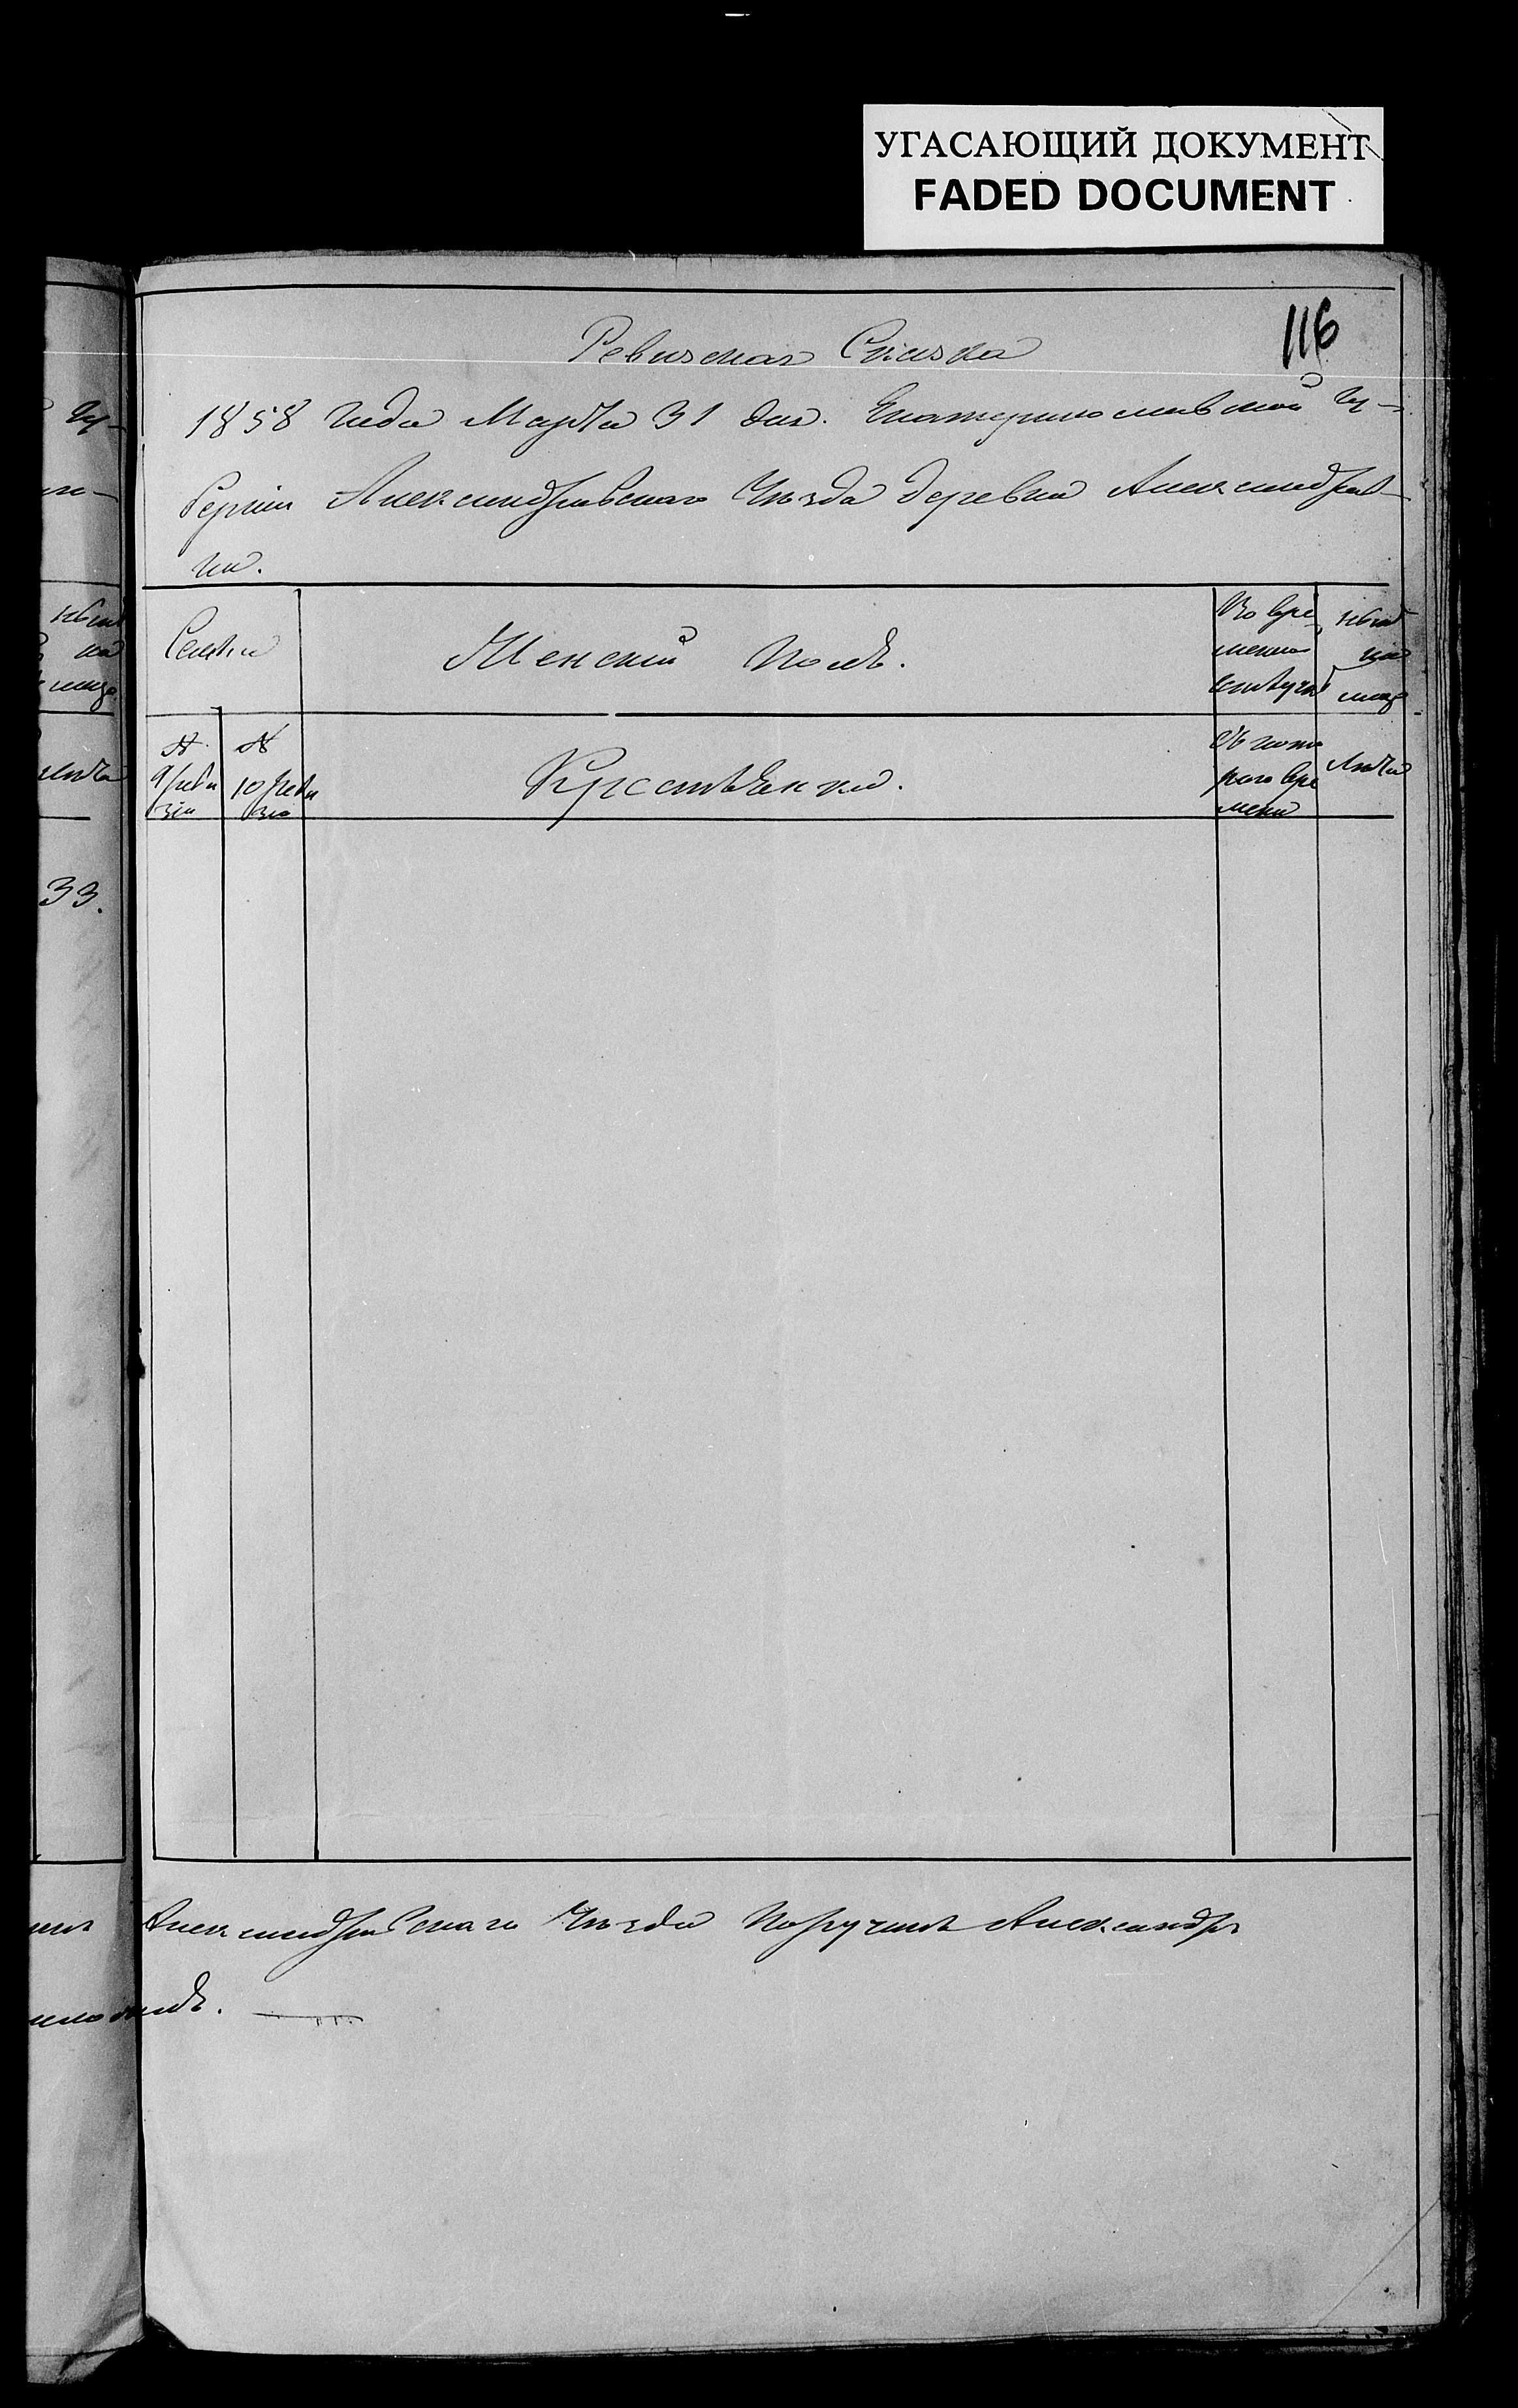 УГАСАЮЩИЙ ДОКУМЕНТ
FADED DOCUMENT
116
Ревизская Сказка
1858 года Марта 31 дня. Екатеринославской Гу-
берніи Александровскаго Уѣзда деревни Александров-
ки.
Семьи
Женскій полъ.
Во вре
менно
отлучкѣ
нынѣ
на
лицо
№
9 реви
зіи
№
10 реви
зіи
Крестьянки.
Съ кото
раго вре
мени
Лѣта
33.
Александровскаго Уѣзда Поручикъ Александръ